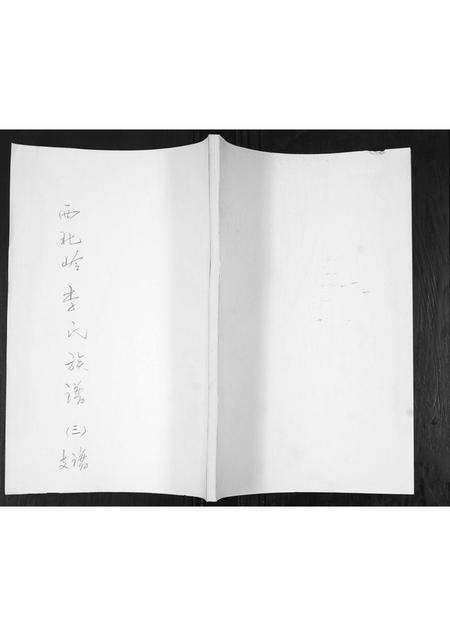 西北岭李氏族谱(三)
支谱